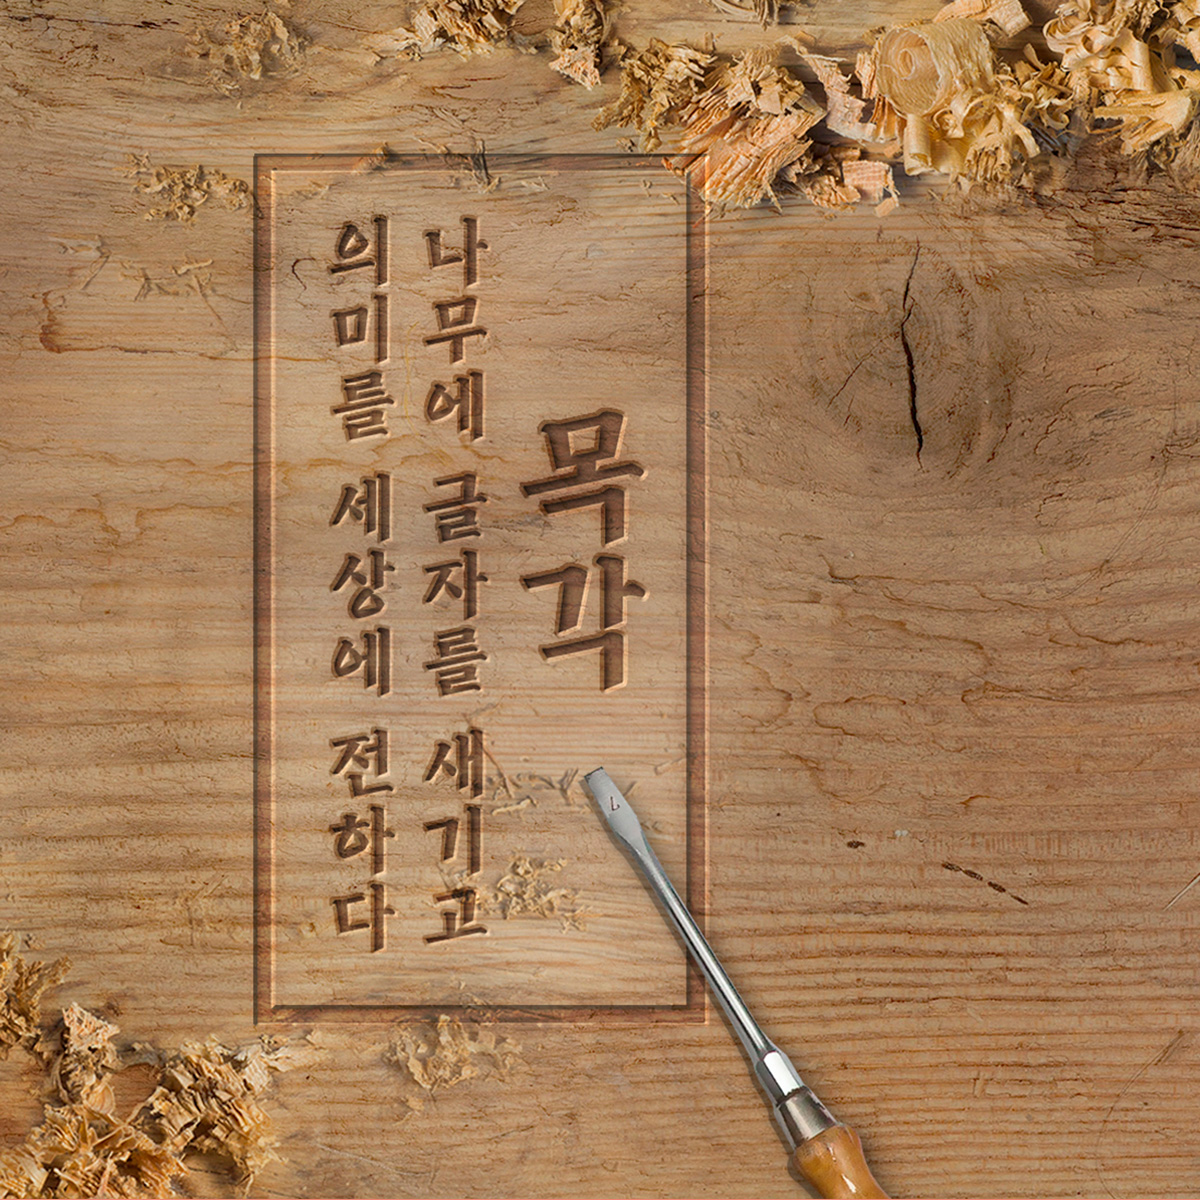 목각
나무에 글자를 새기고
의미를 세상에 전하다